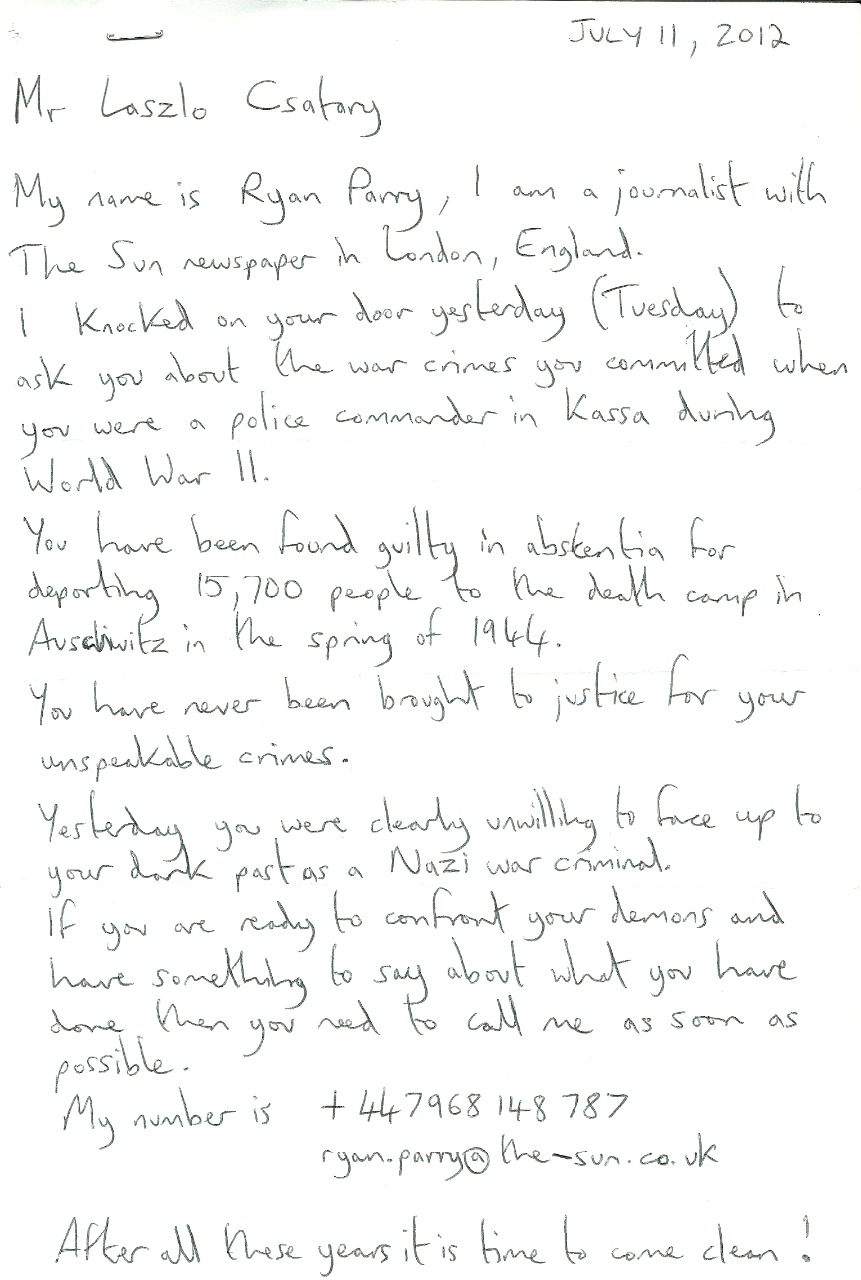 JULY 11, 2012
Mr Laszlo Csatary
My name is Ryan Parry, I am a journalist with
The Sun newspaper in London, England.
I knocked on your door yesterday (Tuesday) to
ask you about the war crimes you committed when
you were a police commander in Kassa during
World War II.
You have been found guilty in abstentia for
deporting 15,700 people to the death camp in
Auschwitz in the spring of 1944.
You have never been brought to justice for your
unspeakable crimes.
Yesterday you were clearly unwilling to face up to
your dark past as a Nazi war criminal.
If you are ready to confront your demons and
have something to say about what you have
done then you need to call me as soon as
possible.
My number is +447968 148 787
ryan.parry@the-sun.co.uk
After all these years it is time to come clean!